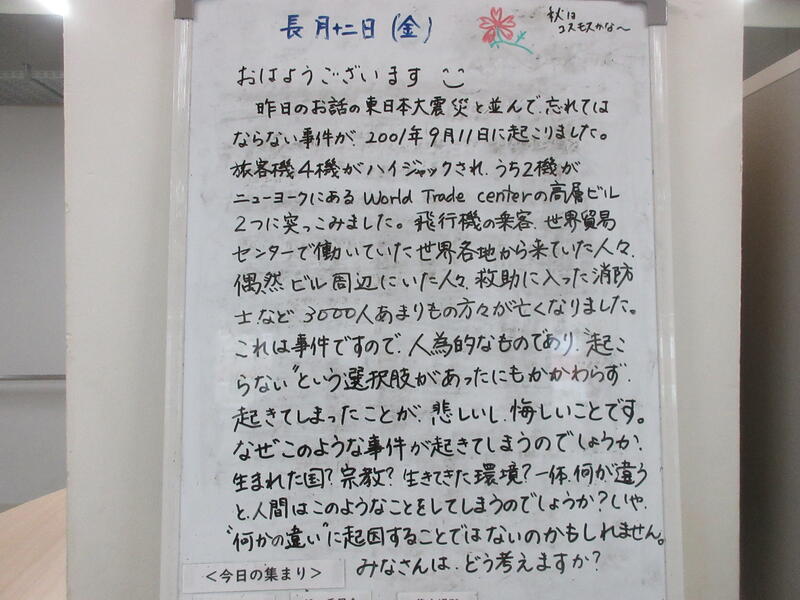 長月十二日(金)
秋は
コスモスかな〜
おはようございます
昨日のお話の東日本大震災と並んで、忘れては
ならない事件が、2001年9月11日に起こりました。
旅客機4機がハイジャックされ、うち2機が
ニューヨークにあるWorld Trade centerの高層ビル
2つに突っこみました。飛行機の乗客、世界貿易
センターで働いていた世界各地から来ていた人々、
偶然ビル周辺にいた人々、救助に入った消防
士など3000人あまりもの方々が亡くなりました。
これは事件ですので、人為的なものであり、"起こ
らない"という選択肢があったにもかかわらず、
起きてしまったことが、悲しいし、悔しいことです。
なぜこのような事件が起きてしまうのでしょうか、
生まれた国?宗教?生きてきた環境?一体、何が違う
と、人間はこのようなことをしてしまうのでしょうか?いや、
"何かの違い"に起因することではないのかもしれません。
みなさんは、どう考えますか?
<今日の集まり>